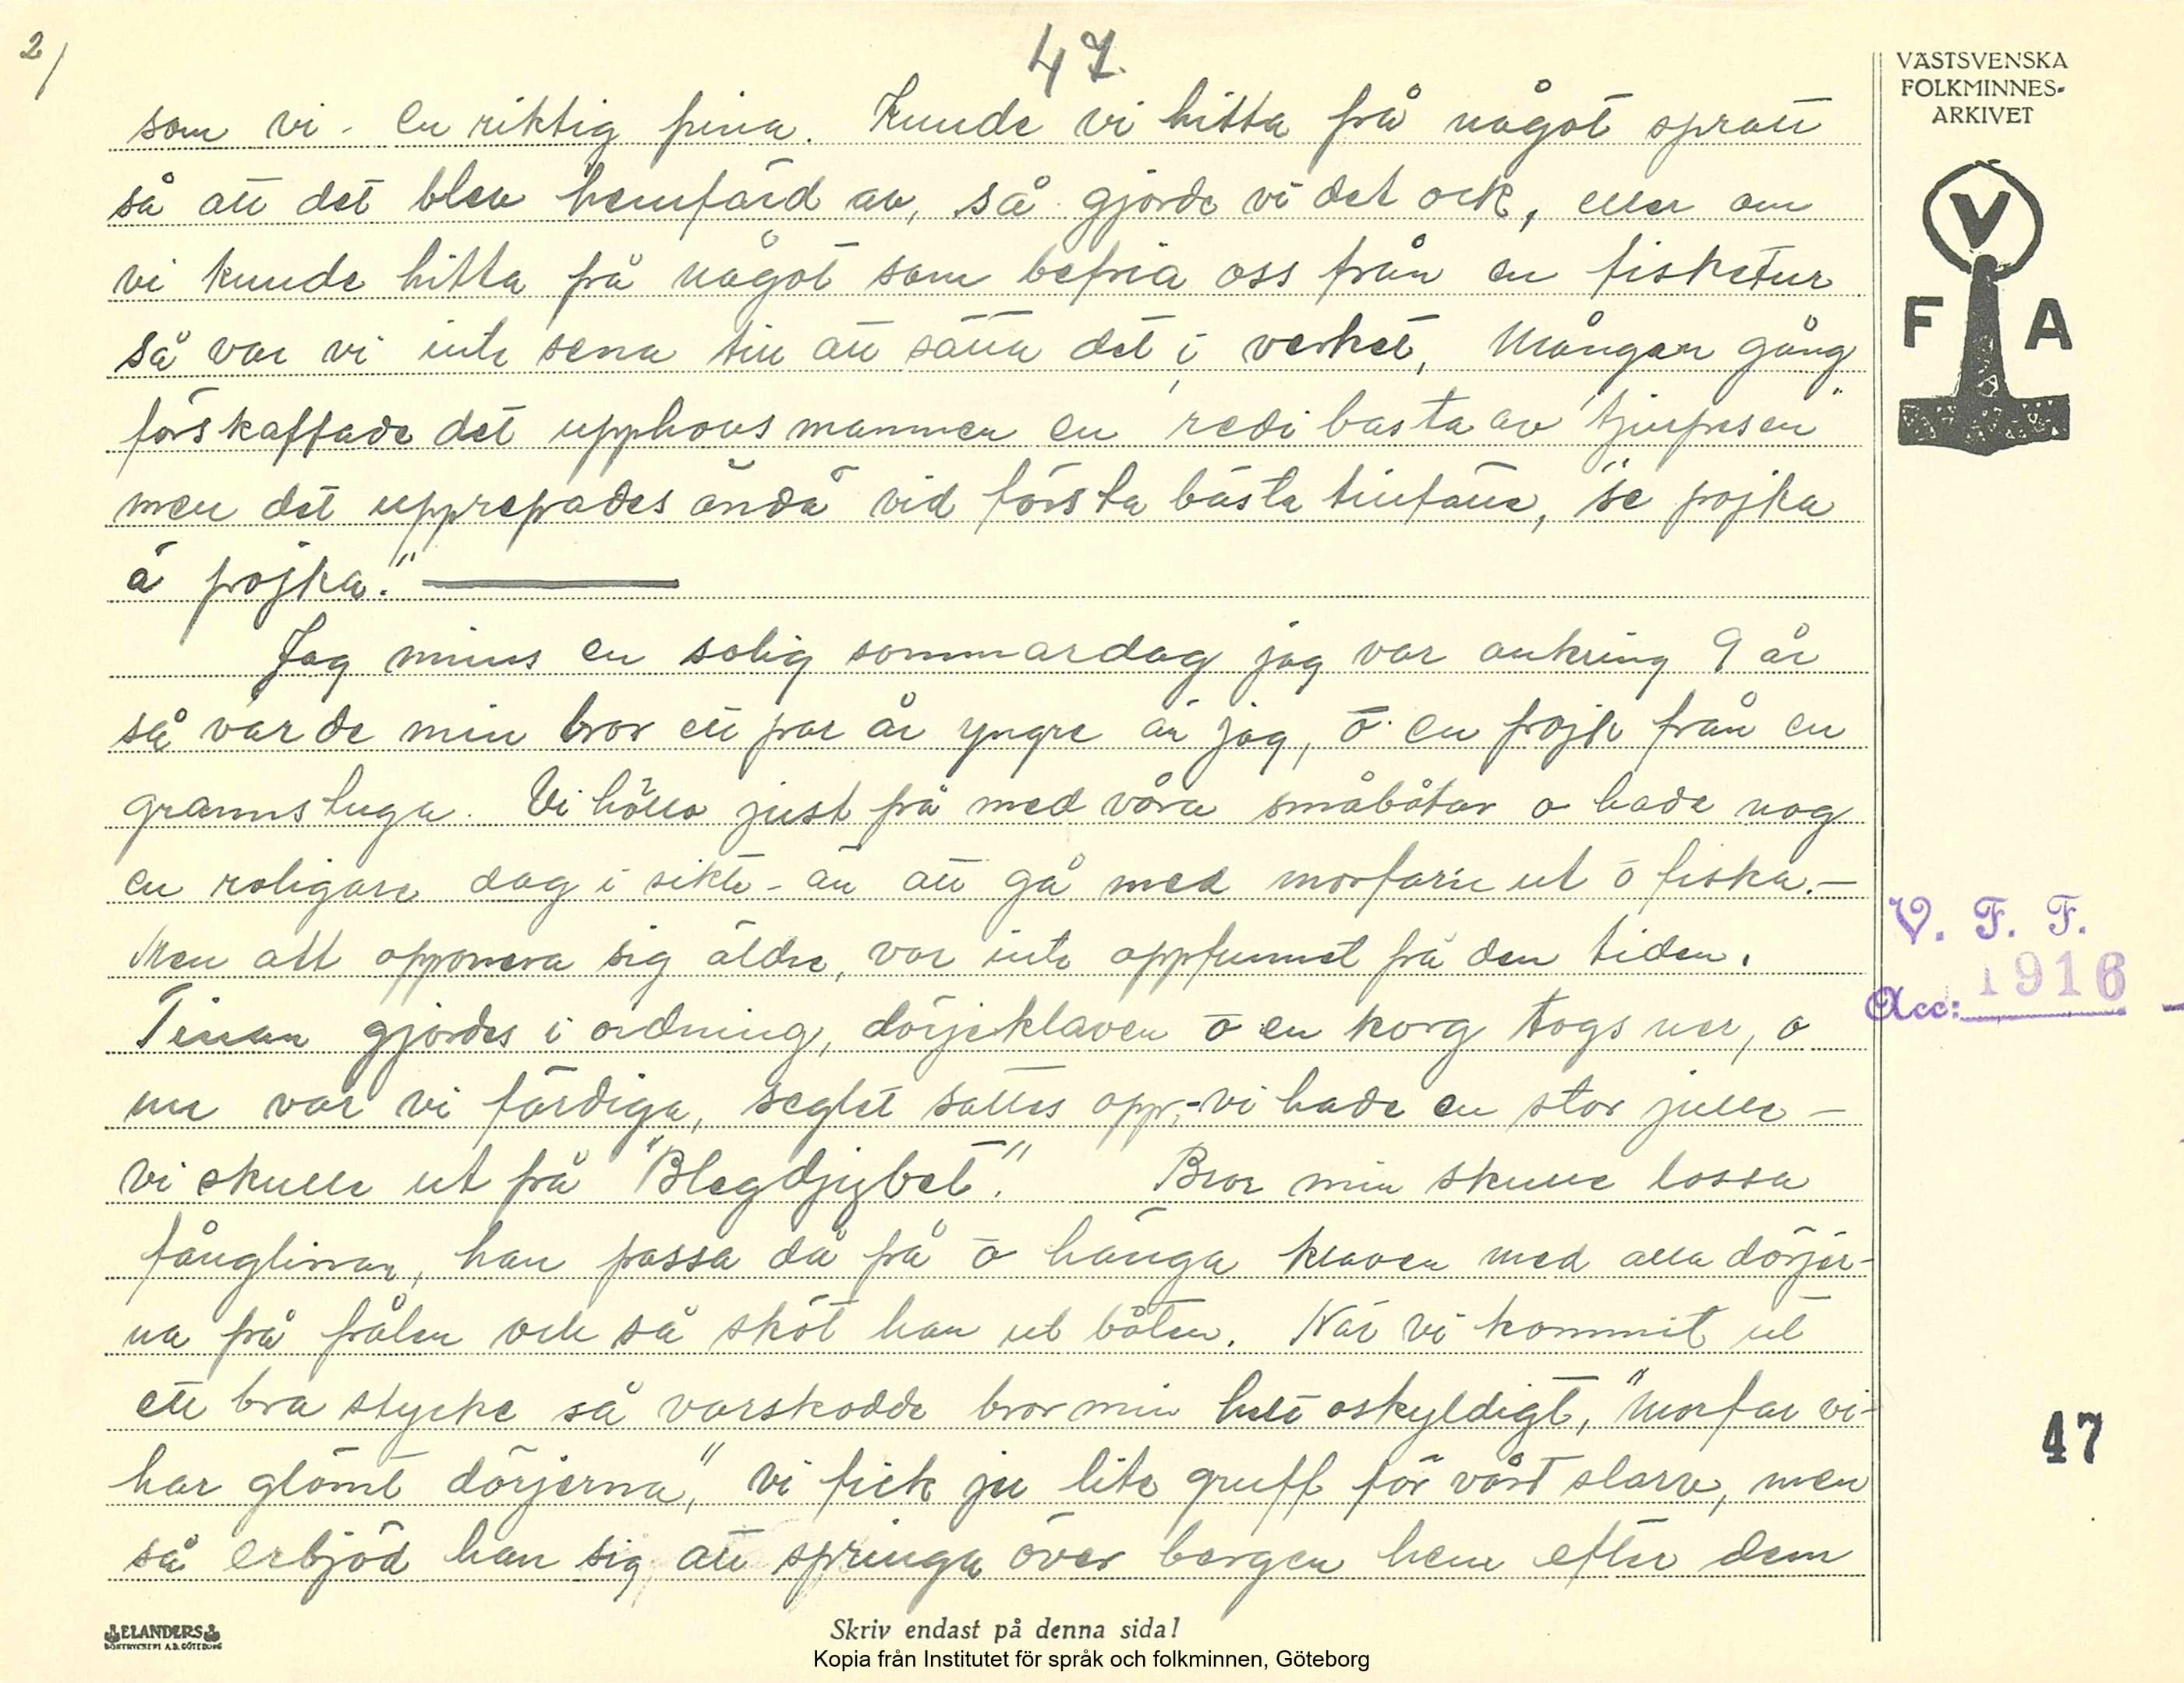 2/
47.
VÄSTSVENSKA
FOLKMINNES-
ARKIVET
V
F A
som vi - en riktig pina. Kunde vi hitta på något spratt
så att det blev hemfärd av, så gjorde vi det ock, eller om
vi kunde hitta på något som befria oss från en fisketur
så var vi inte sena till att sätta det i verket, Mången gång
förskaffade det upphovsmannen en redi basta av
men det upprepades ändå vid första bästa tillfälle, "se pojka
ä pojka."
Jag minns en solig sommardag jag var omkring 9 år
så var de min bror ett par år yngre än jag, ō en pojk från en
grannstuga. Vi höllo just på med våra småbåtar o hade nog
en roligare dag i sikte - än att gå med morfar ut ō fiska. -
Men att opponera sig äldre, var inte oppfunnet på den tiden.
Tinan gjordes i ordning, dörjeklaven ō en korg togs ner, o
nu var vi färdiga, seglet sattes opp, - vi hade en stor julle -
vi skulle ut på "Blegdjybet". Bror min skulle lossa
fånglinan, han passa då på ō hänga klaven med alla dörjer-
na på pålen och så sköt han ut båten. När vi kommit ut
ett bra stycke så varskodde bror min helt oskyldigt, "Morfar vi-
har glömt dörjerna", vi fick ju lite gruff för vårt slarv, men
så erbjöd han sig att springa över bergen hem efter dem
V. F. F.
Acc: 1916
47
ELANDERS
BOKTRYCKERI A.B. GÖTEBORG
Skriv endast på denna sida!
Kopia från Institutet för språk och folkminnen, Göteborg